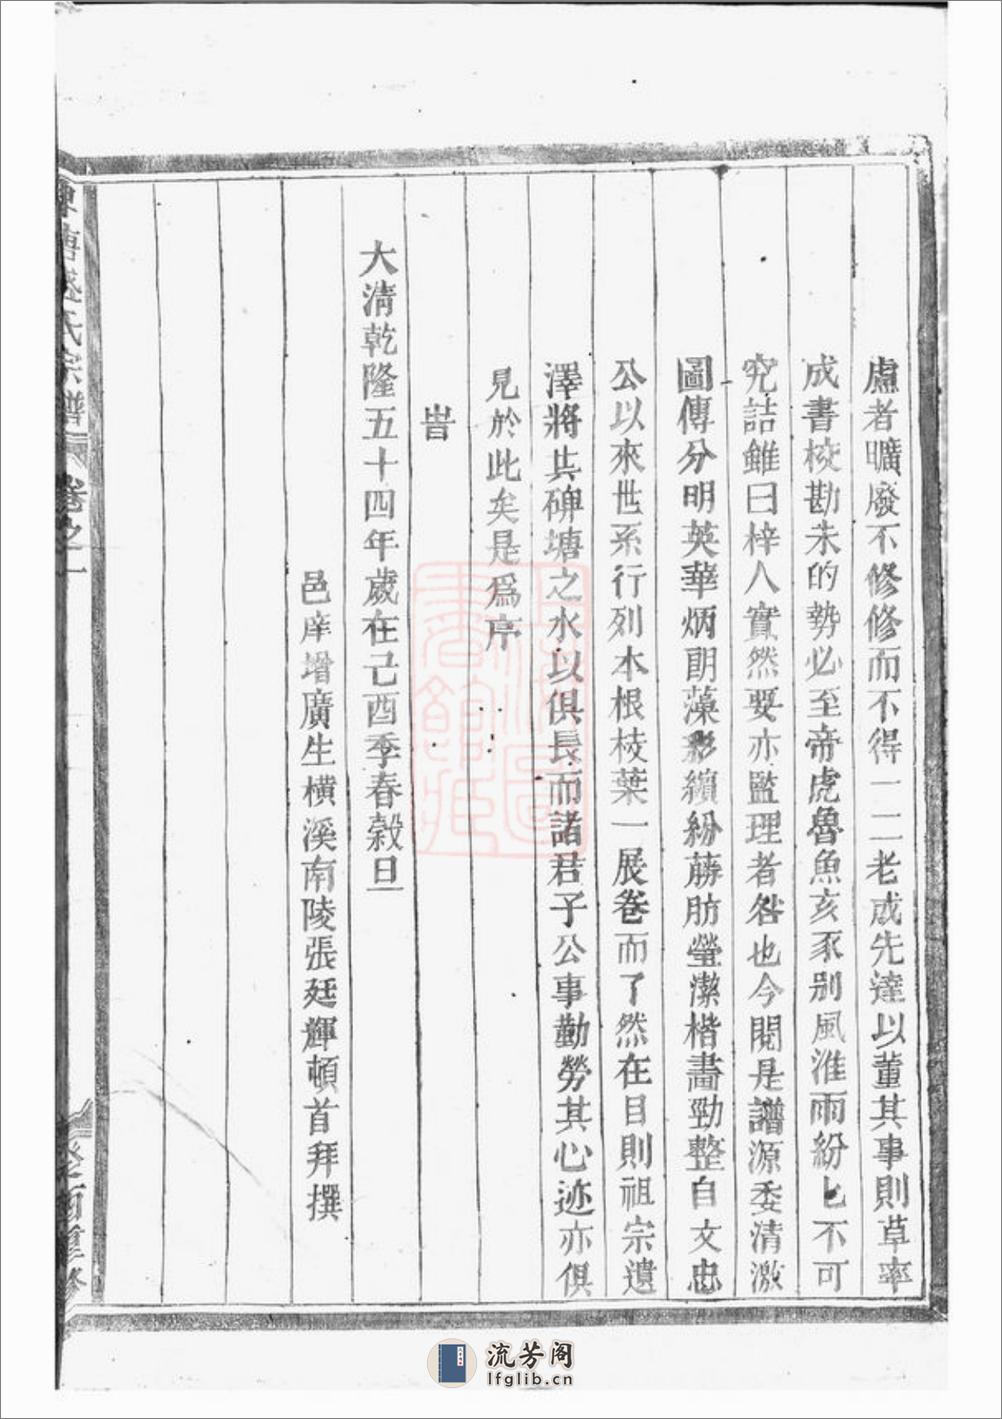 慮者曠廢不修修而不得一二老成先達以董其事則草率
成書校勘未的勢必至帝虎魯魚亥豕别風淮雨紛匕不可
究詰雖曰梓人實然要亦監理者咎也今閱是譜源委清澈
圖傳分明英華炳朗藻彩繽紛蕂肪瑩潔楷畫勁整自文忠
公以來世系行列本根枝葉一展卷而了然在目則祖宗遺
澤將共碑塘之水以俱長而諸君子公事勤勞其心迹亦俱
見於此矣是爲序
旹
大清乾隆五十四年歲在己酉季春穀旦
邑庠增廣生橫溪南陵張廷輝頓首拜撰
塘盛氏宗譜
卷之一
酉重修
上海圖書館藏
流芳阁
lfglib.cn